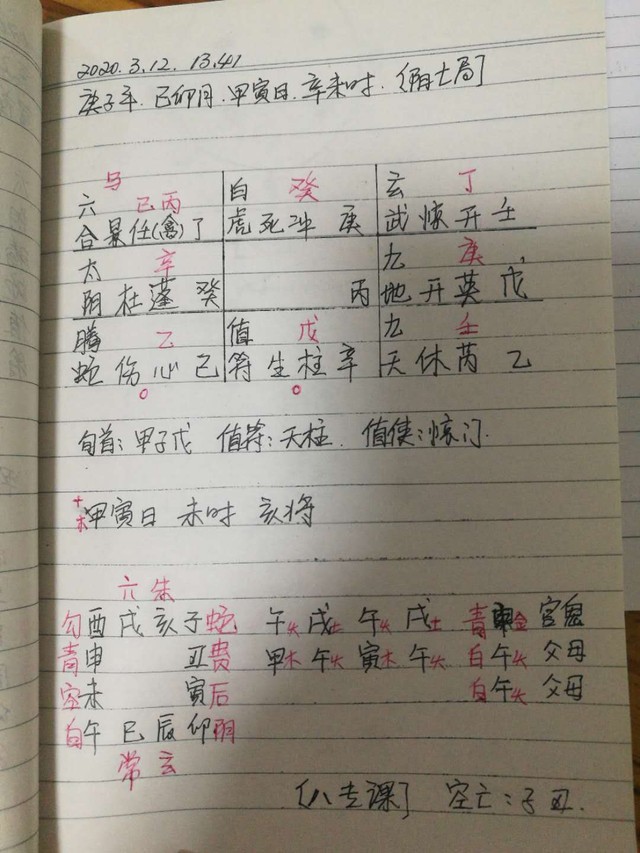 2020.3.12. 13.41
庚子年.己卯月.甲寅日.辛未时.(阳七局]
马
六 己丙 白 癸 玄 丁
合景任(禽)丁 虎死冲 庚 武惊开壬
太 辛 九 庚
阴杜蓬 癸 丙 地开英 戊
腾 乙 值 戊 九 壬
蛇伤心己 符生柱辛 天休芮 乙
旬首:甲子戊 值符:天柱. 值使:惊门.
甲寅日 未时 亥将
六 朱
勾酉戌亥子蛇 午火 戌土 午火 戌土 青申金 官鬼
青申 丑贵 甲木 午火 寅木 午火 白午火 父母
空未 寅后 白午火 父母
白午巳辰卯阴
常 玄
[八专课] 空亡:子丑.